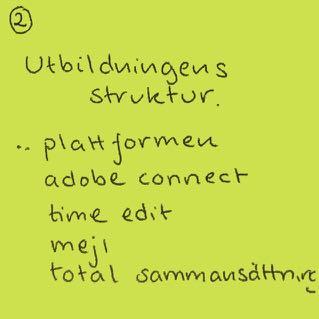 2
Utbildningens
struktur.
.. plattformen
adobe connect
time edit
mejl
total sammansättning